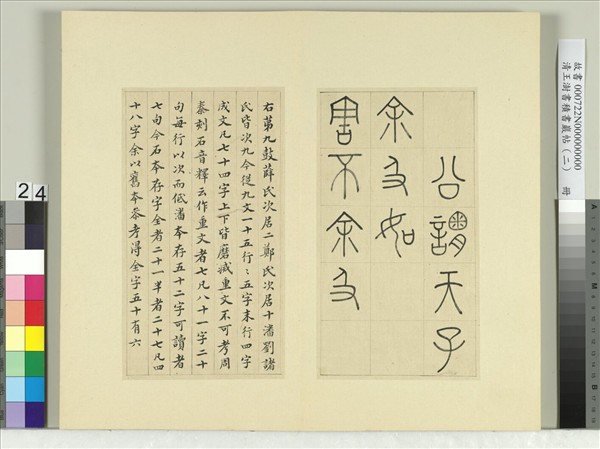 公謂天子
余及如
害不余及
右第九鼓薛氏次居二鄭氏次居十潘劉諸
氏皆次九今從九文一十五行〻五字末行四字
成文凡七十四字上下皆磨滅重文不可考周
秦刻石音釋云作重文者七凡八十一字二十
句每行以次而低潘本存五十二字可讀者
七句今石本存字全者二十一半者二十七凡四
十八字余以舊本參考得全字五十有六
故書 000722N000000000
清王澍書積書巖帖(二) 冊
24